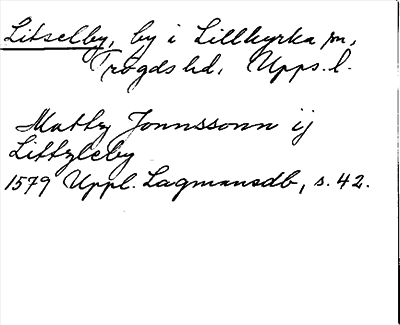 Litselby, by i Lillkyrka sn,
Trögds hd, Upps. l.
Mattz Jonnssonn ij
Littzleby
1579 Uppl. Lagmansdb, s. 42.